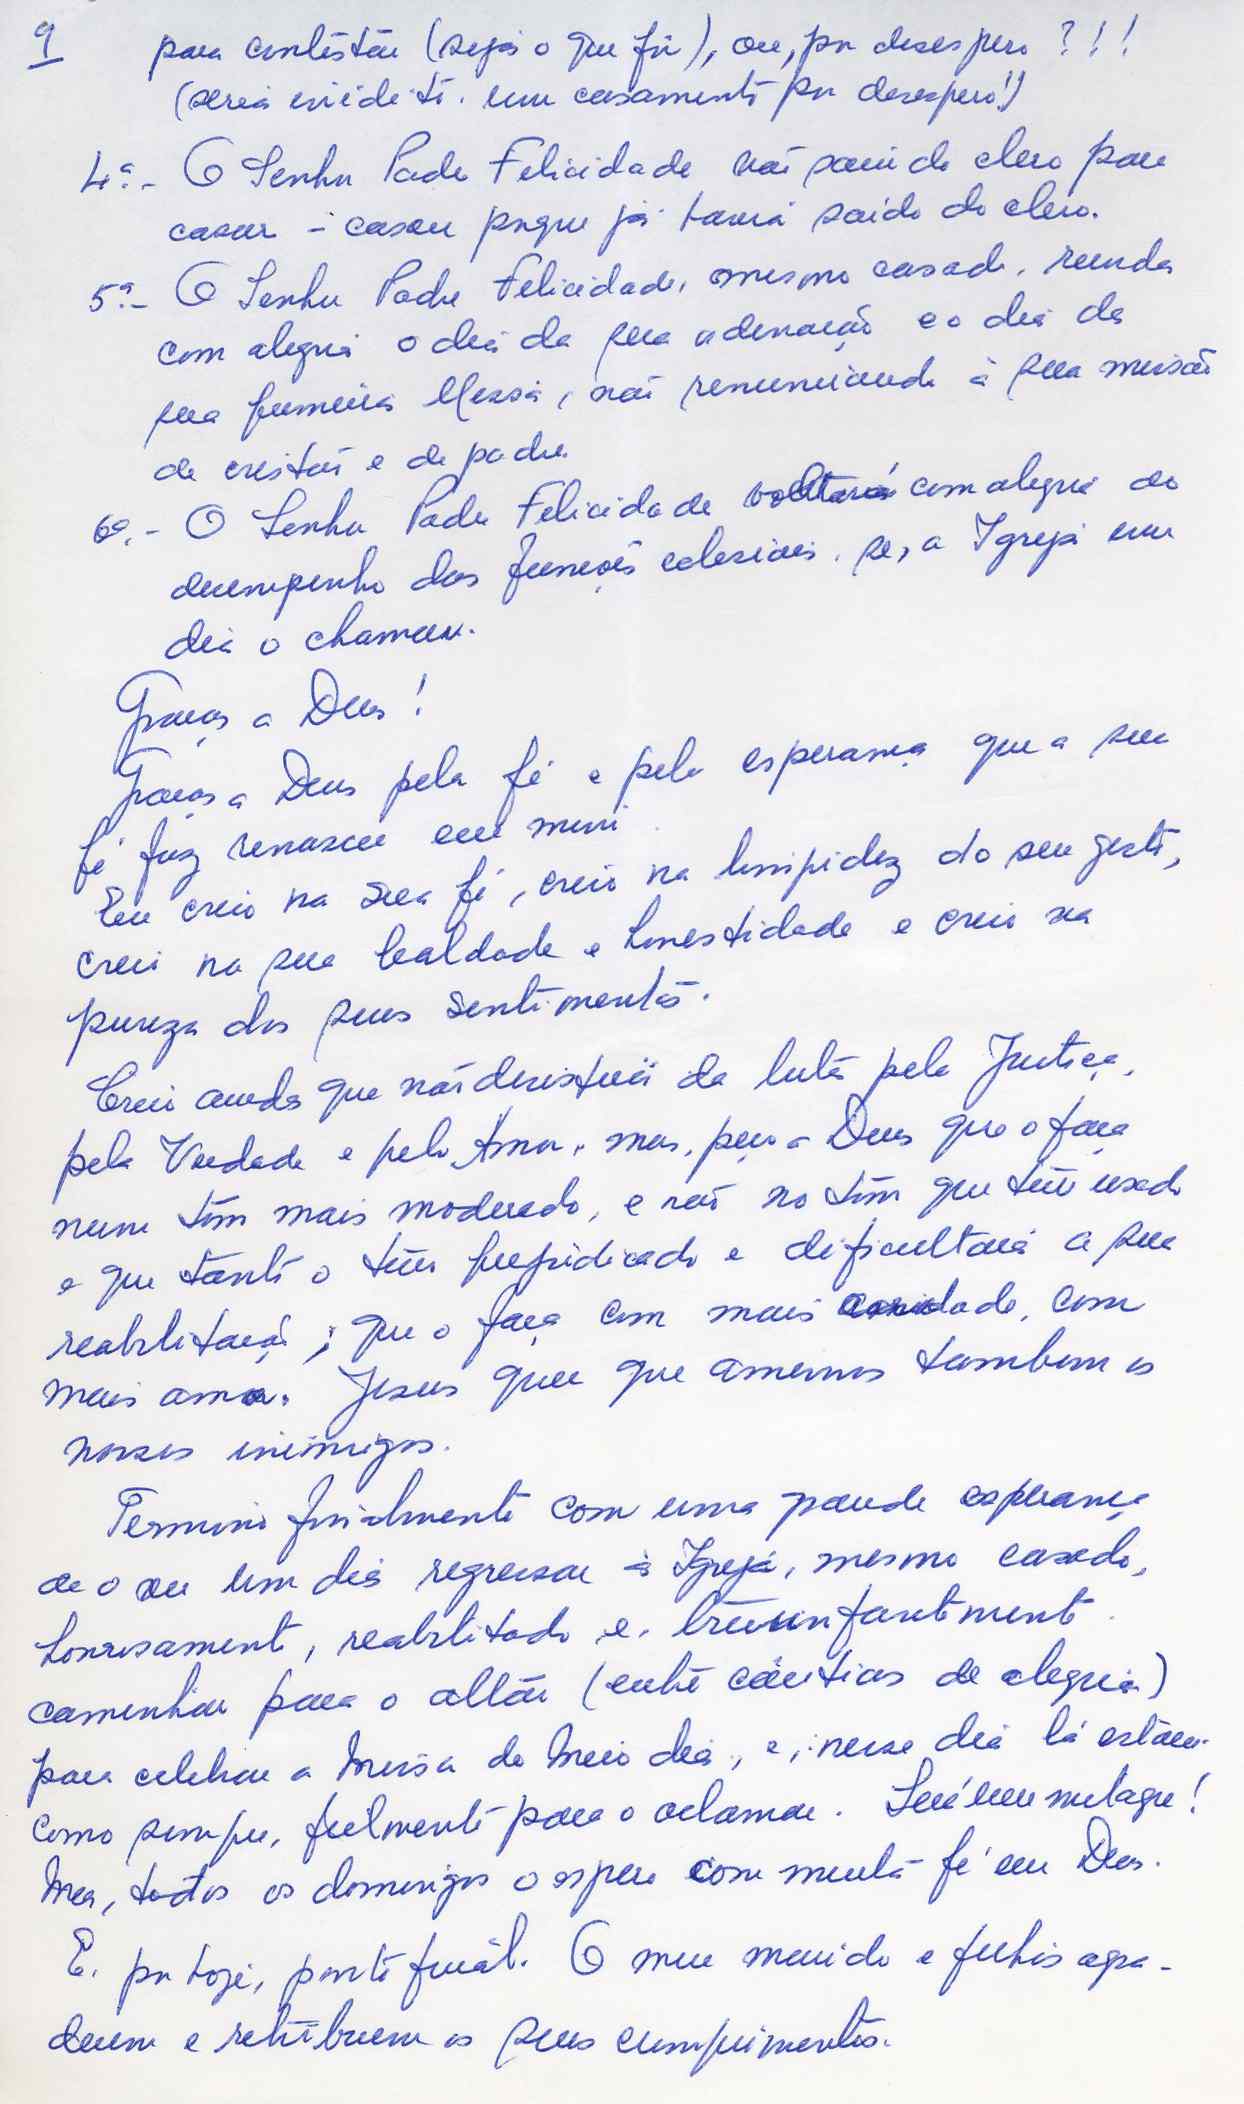 9
para contestar (seja o que fôr), ou, por desespero ?!!
(seria inédito. um casamento por desespero!)
4ª.- O Senhor Padre Felicidade não saiu do clero para
casar - casou porque já havia saído do clero.
5ª.- O Senhor Padre Felicidade, mesmo casado, recorda
com alegria o dia da sua ordenação e o dia da
sua primeira Missa, não renunciando à sua missão
de cristão e de padre.
6ª.- O Senhor Padre Felicidade voltará com alegria ao
desempenho das funções eclesiais, se, a Igreja um
dia o chamar.
Graças a Deus!
Graças a Deus pela fé e pela esperança que a sua
fé faz renascer em mim.
Eu creio na sua fé, creio na limpidez do seu gesto,
creio na sua lealdade e honestidade e creio na
pureza dos seus sentimentos.
Creio ainda que não desistirá da luta pela Justiça,
pela Verdade e pelo Amor, mas, peço a Deus que o faça
num tom mais moderado, e não no tom que tem usado
e que tanto o tem prejudicado e dificultará a sua
reabilitação; que o faça com mais caridade, com
mais amor. Jesus quer que amemos tambem os
nossos inimigos.
Termino finalmente com uma grande esperança
de o ver um dia regressar à Igreja, mesmo casado,
honrosamente, reabilitado, e, triunfantemente
caminhar para o altar (entre cânticos de alegria)
para celebrar a Missa do Meio dia, e, nesse dia lá estarei
como sempre, fielmente para o aclamar. Será um milagre!
Mas, todos os domingos o espero com muita fé em Deus.
E, por hoje, ponto final. O meu marido e filhos agra-
decem e retribuem os seus cumprimentos.